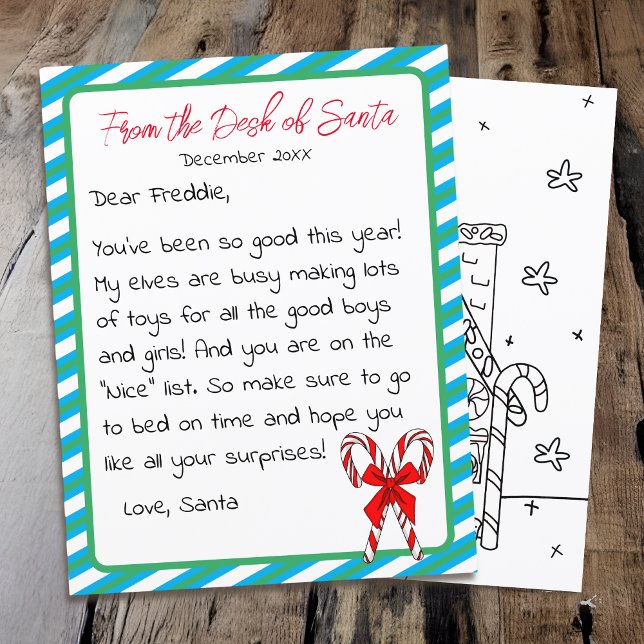 From the Desk of Santa
December 20XX
Dear Freddie,
You've been so good this year!
My elves are busy making lots
of toys for all the good boys
and girls! And you are on the
"Nice" list. So make sure to go
to bed on time and hope you
like all your surprises!
Love, Santa